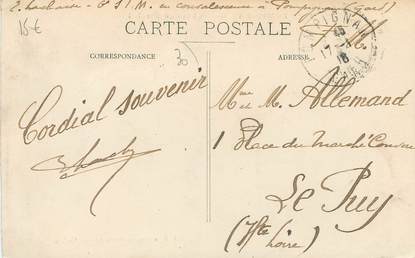 15€
en convalescence à Pompignan (Gard)
CARTE POSTALE
CORRESPONDANCE
30
ADRESSE
PIGNA
17
16
Cordial souvenir
Mme et M. Allemand
1 Place du Marché Couvert
Le Puy
(Hte Loire)